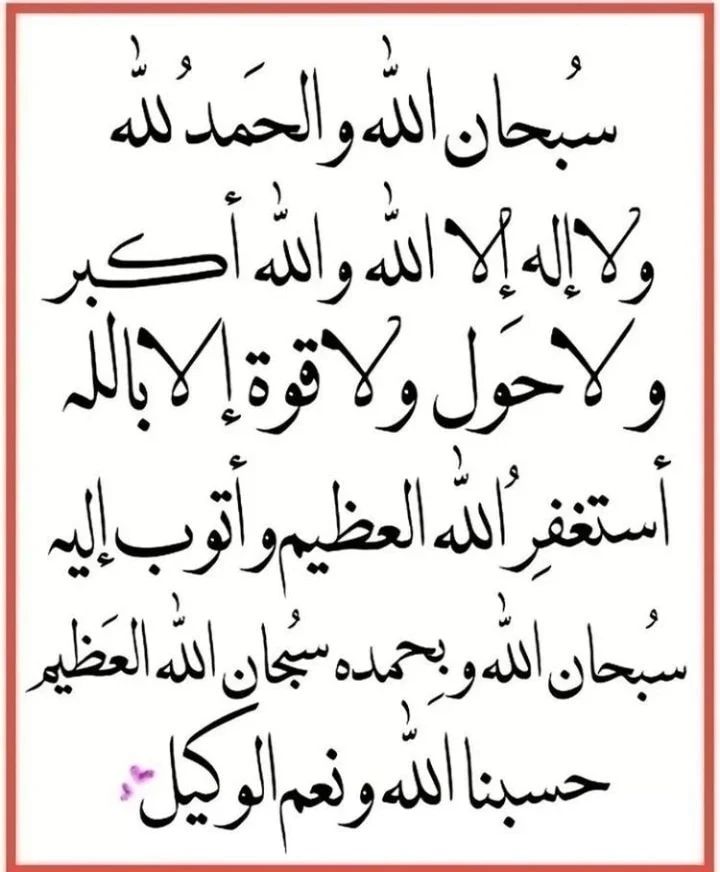 سُبحان الله والحَمدُ لله
ولا إله إلا الله والله أكبر
ولا حَول ولا قوة إلا بالله
أستغفِرُ الله العظيم وأتوب إليه
سُبحان الله وبِحمده سُبحان الله العَظيم
حسبنا الله ونعم الوكيل